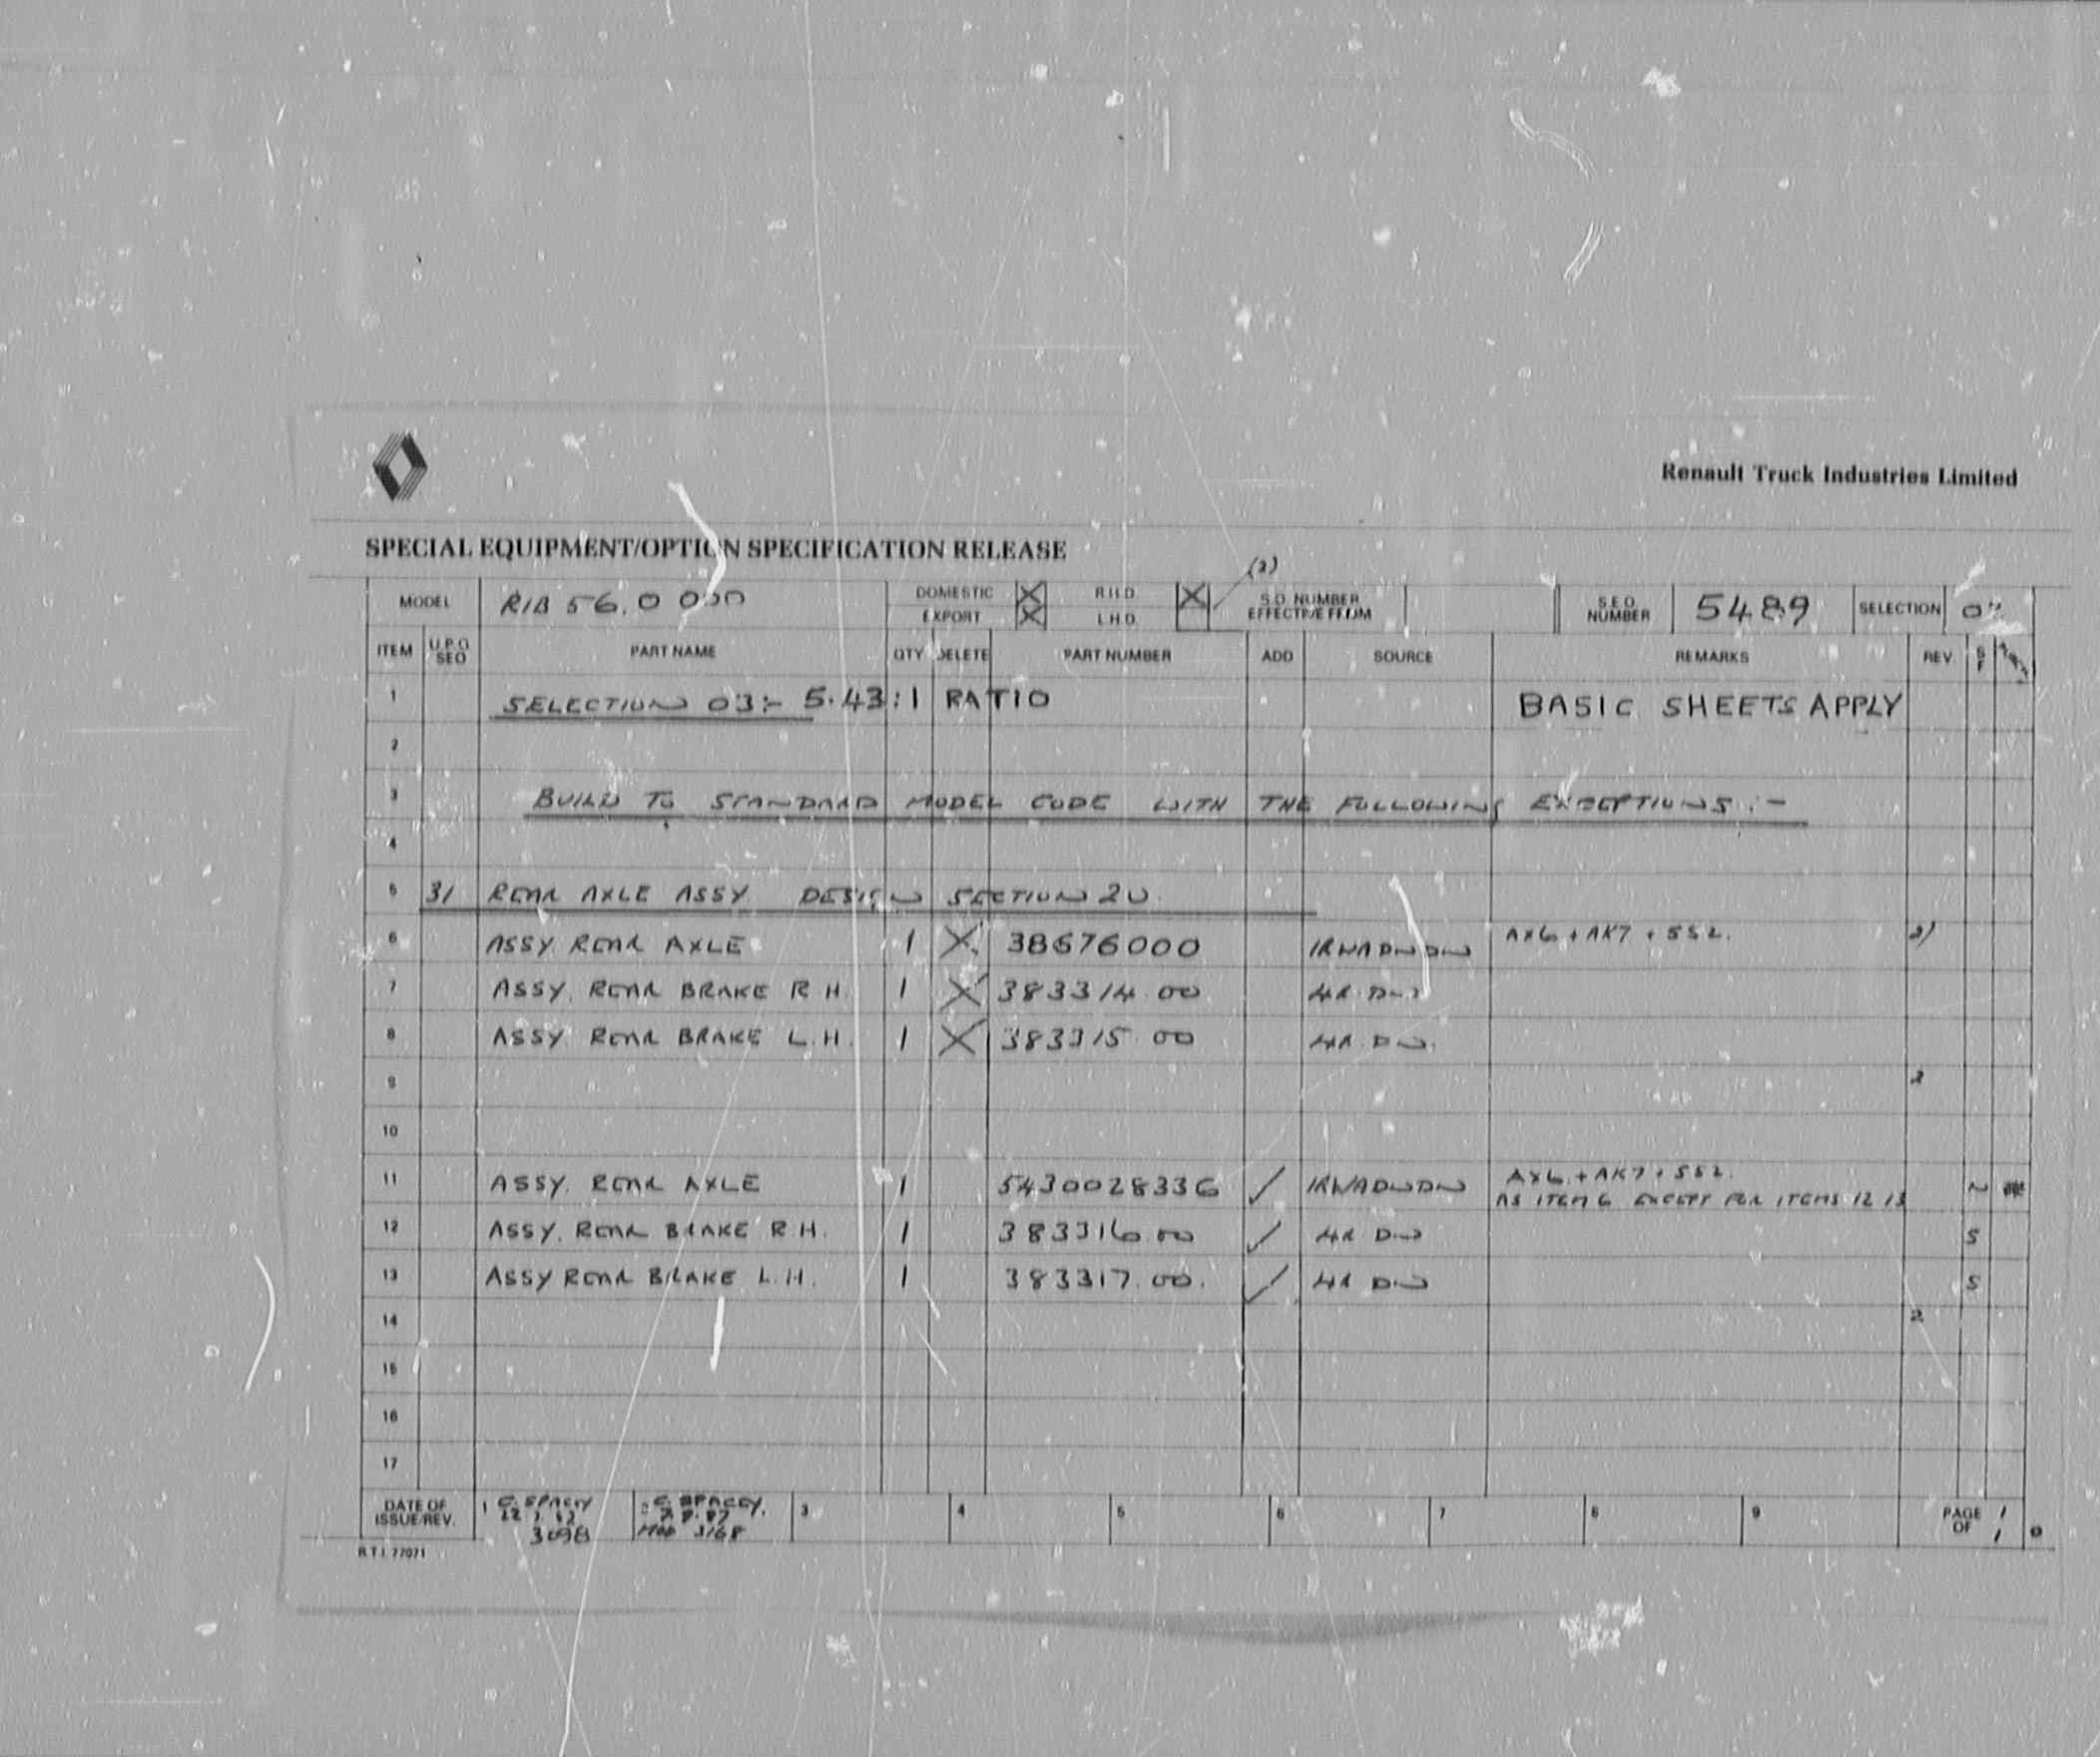 Renault Truck Industries Limited
SPECIAL EQUIPMENT/OPTION SPECIFICATION RELEASE
(2)
MODEL RIB 56.0 000 DOMESTIC X R.H.D. X S.D. NUMBER EFFECTIVE FROM S.E.O. NUMBER 5489 SELECTION
EXPORT X L.H.D.
ITEM U.P.G SEQ PART NAME QTY DELETE PART NUMBER ADD SOURCE REMARKS REV S F
1 SELECTION 03:- 5.43:1 RATIO BASIC SHEETS APPLY
2
3 BUILD TO STANDARD MODEL CODE WITH THE FOLLOWING EXCEPTIONS:-
4
5 31 REAR AXLE ASSY DESIGN SECTION 20
6 ASSY. REAR AXLE 1 X 38676000 AX6 + AK7 + SS2.
7 ASSY. REAR BRAKE R H. 1 X 383314.00
8 ASSY REAR BRAKE L.H. 1 X 383315.00
9 2
10
11 ASSY. REAR AXLE 1 5430028336 ✓ AX6.+AK7+SS2.
AS ITEM 6 EXCEPT FOR ITEMS 12 13 N
12 ASSY. REAR BRAKE R.H. 1 383316.00 ✓ S
13 ASSY REAR BRAKE L.H. 1 383317.00. ✓ S
14 2
15
16
17
DATE OF ISSUE/REV. 1 C. SPACEY 3098 2 C. SPACEY. MOD 3168 3 4 5 6 7 8 9 PAGE 1 OF 1
R.T.I. 77071